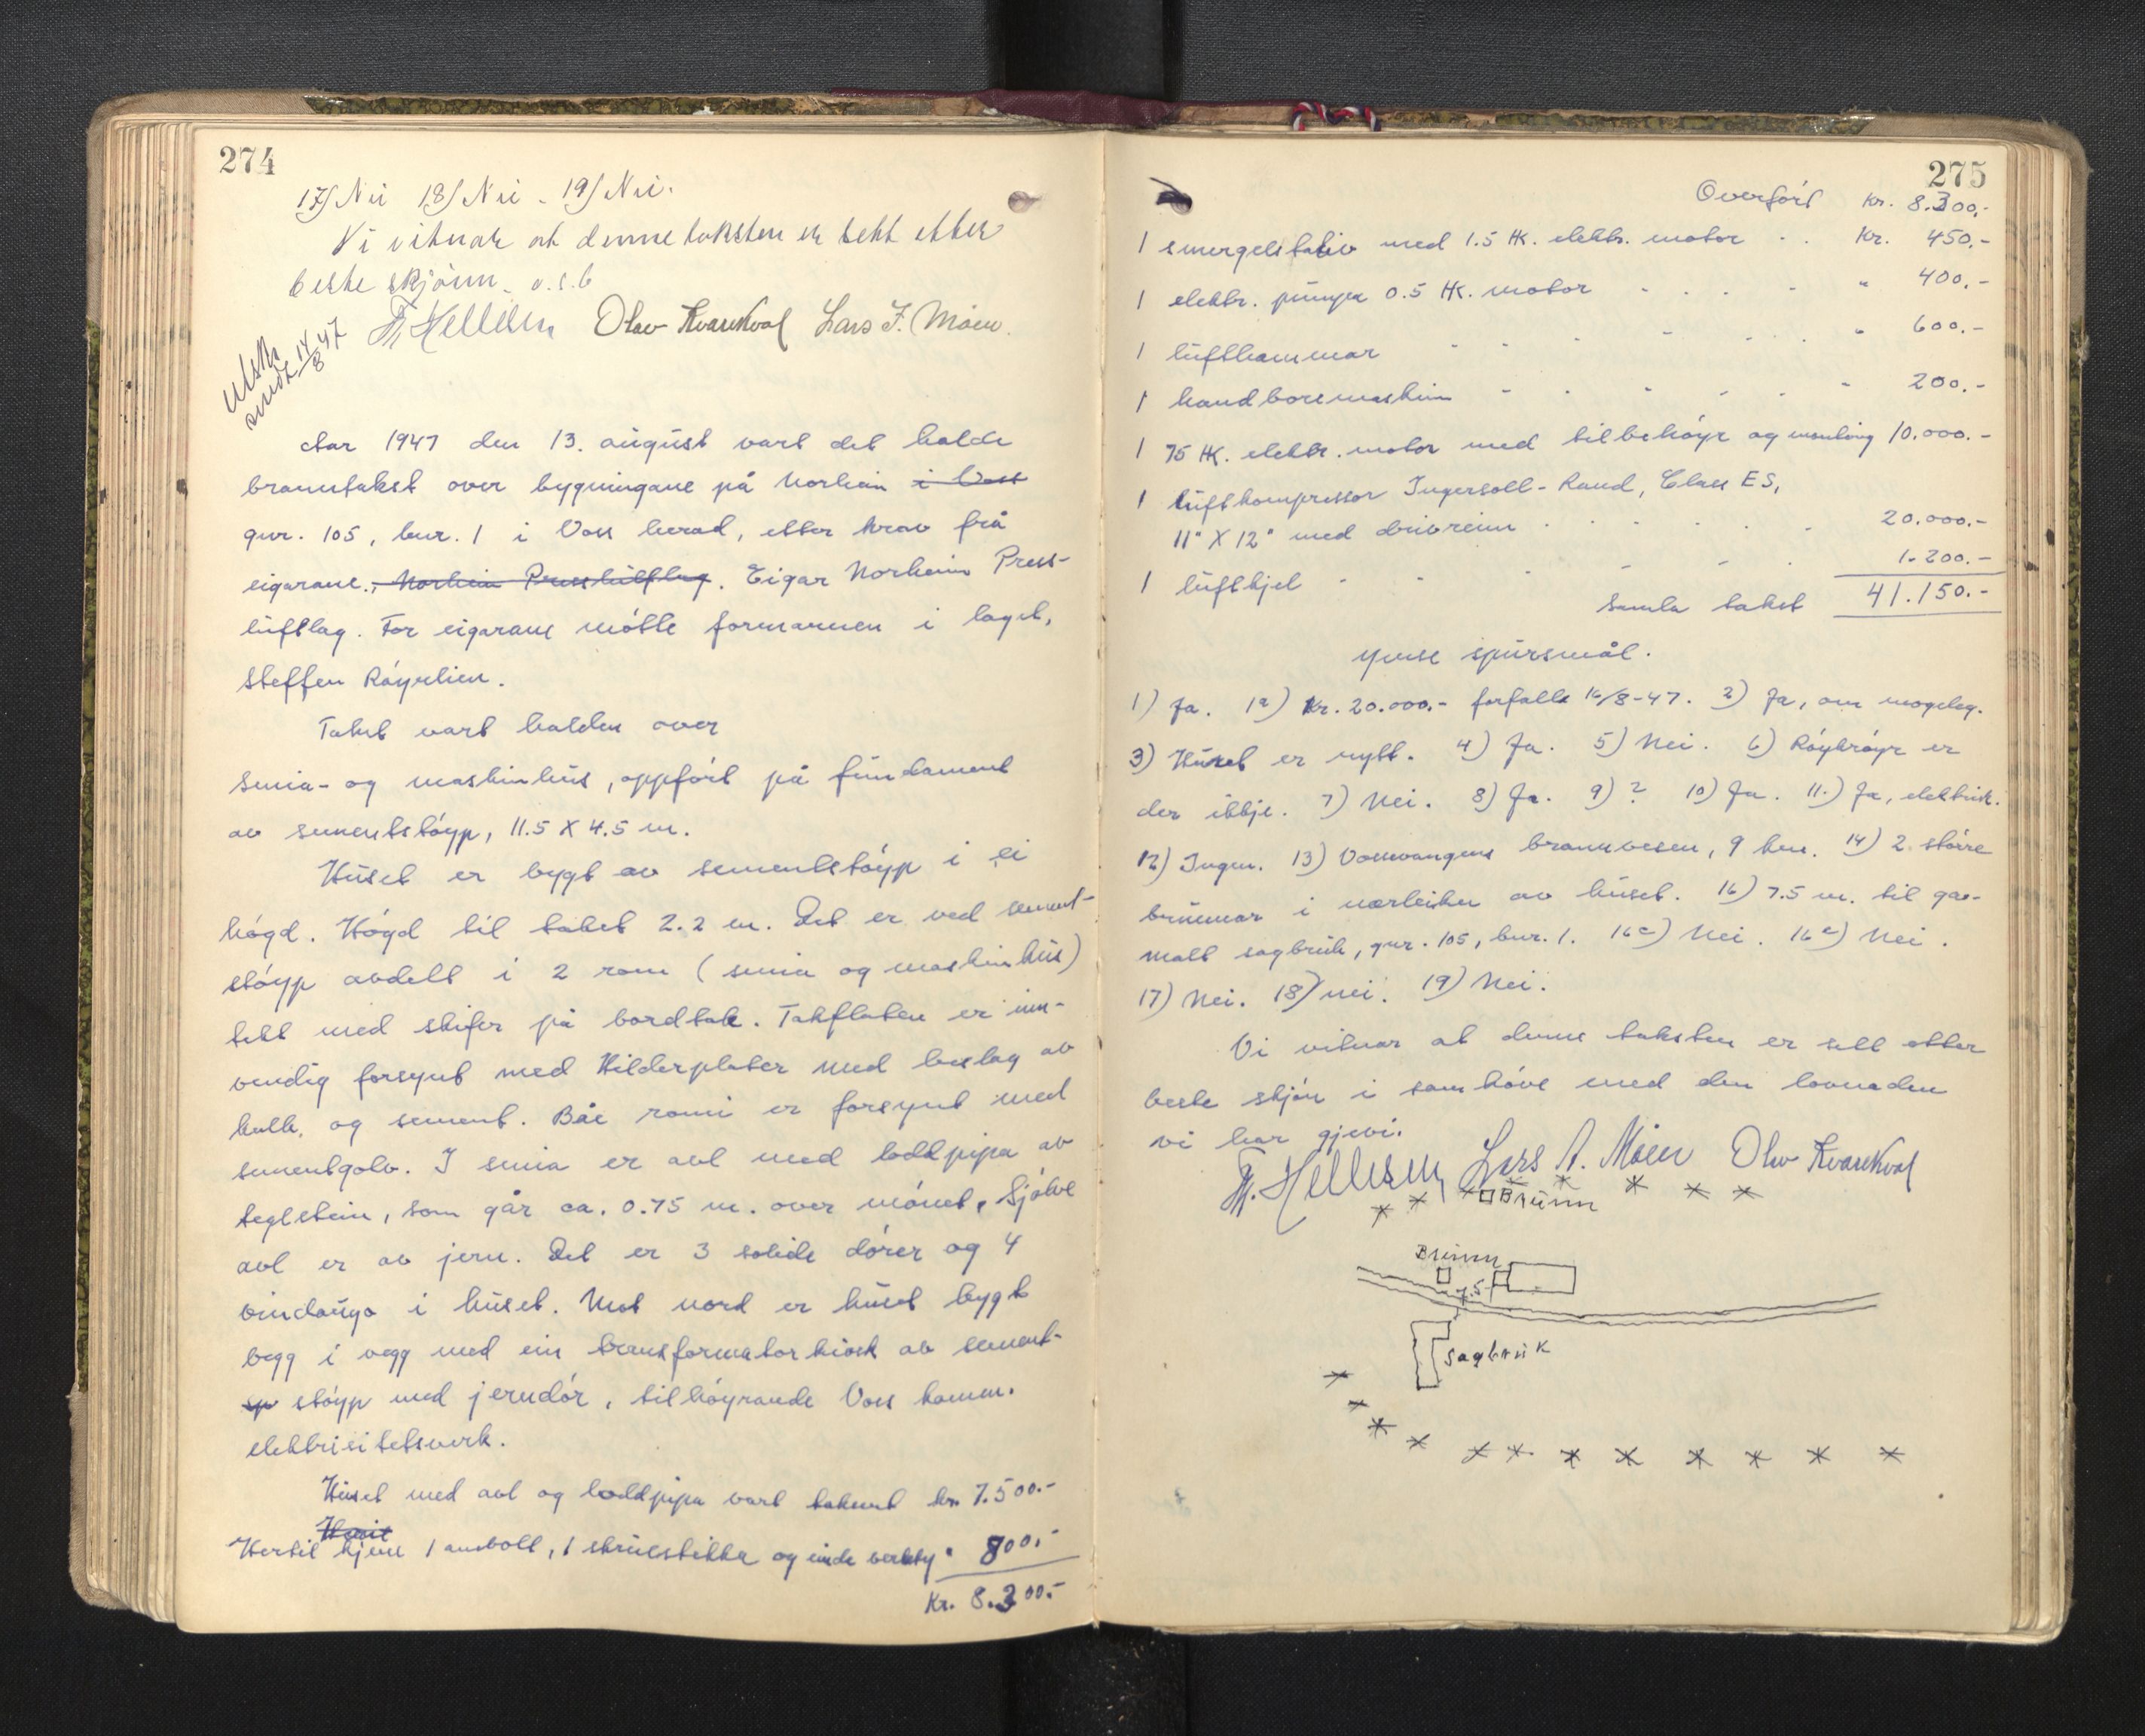 274
17) Nei 18) Nei - 19) Nei.
Vi vitnar at denne taksten er sett etter
beste skjönn - o.s.b
Olav Kvarekval Lars J. Möen.
Utskr.
sendt 14/8 47
Aar 1947 den 13. august vart det halde
branntakst over bygningane på Norheim i Voss
gnr. 105, bnr. 1 i Voss herad, etter krav frå
eigarane, Norheim Pressluftlag. Eigar Norheim Press-
luftlag. For eigarane mötte formannen i laget,
Steffen Röyrlien.
Takst vart halden over
Smia- og maskinhus, oppfört på fundament
av sementstöyp, 11.5 X 4.5 m.
Huset er bygt av sementstöyp i ei
högd. Högd til taket 2.2 m. Det er ved sement-
stöyp avdelt i 2 rom (smia og maskinhus)
tekt med skifer på bordtak. Takflaten er inn-
vendig forsynt med Hilderplater med beslag av
kalk, og sement. Båe romi er forsynt med
sementgolv. I smia er avl med loddpipa av
teglstein, som går ca. 0.75 m. over mönet. Sjölve
avl er av jern. Det er 3 solide dörer og 4
vindaugo i huset. Mot nord er huset bygt
vegg i vegg med ein transformatorkiosk av sement-
stöyp med jerndör, tilhöyrande Voss komm.
elektrisitetsverk.
Huset med avl og loddpipa vart taksert kr. 7.500.-
Hertil kjem 1 ambolt, 1 skruestikke og ende verkty " 800.-
Kr. 8.300.-
275
Overfört kr. 8.300.-
1 smergelstativ med 1.5 HK. elektr. motor - . Kr. 450.-
1 elektr. pumpe 0.5 HK. motor - . . - " 400.-
1 lufthammar - - - - . . " 600.-
1 handboremaskin - - - - . - 200.-
1 75 HK. elektr. motor med tilbehöyr og montering 10.000.-
1 luftkompressor Ingersoll-Rand, Class ES,
11" X 12" med drivreim . . . . . 20.000.-
1 luftkjel - - - - . 1.200.-
Samla takst 41.150.-
Ymse spursmål.
1) Ja. 1a) Kr. 20.000.- forfalls 16/8-47. 2) Ja, om mogeleg.
3) Huset er nytt. 4) Ja. 5) Nei. 6) Röykröyr er
der ikkje. 7) Nei. 8) Ja. 9) ? 10) Ja. 11.) Ja, elektrisk.
12) Ingen. 13) Vossevangens brannvesen, 9 km. 14) 2 större
brunnar i nærleiken av huset. 16) 7.5 m. til gam-
malt sagbruk, gnr. 105, bnr. 1. 16c) Nei. 16e) Nei.
17) Nei. 18) nei. 19) Nei.
Vi vitnar at denne taksten er sett etter
beste skjön i samhöve med den lovnaden
vi har gjevi.
Lars A. Möen Olav Kvarekval
Brunn
Brunn
7.5
Sagbruk